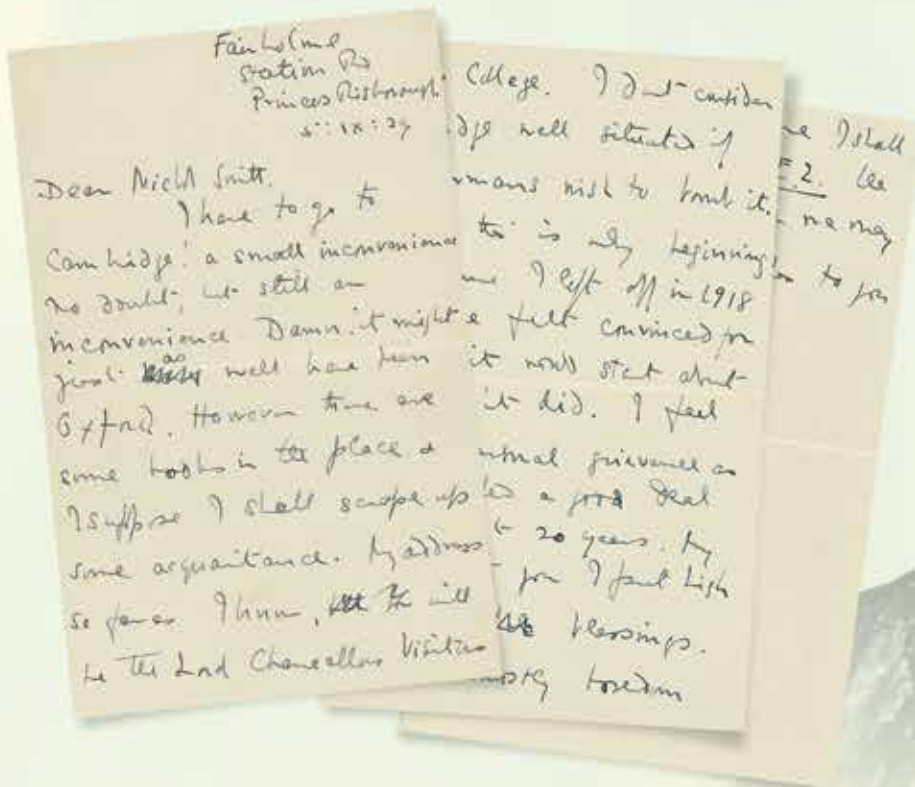 Fairholme
Station Rd
Princes Risborough
5 : ix : 39
Dear Nichol Smith.
I have to go to
Cambridge: a small inconvenience
no doubt, but still an
inconvenience. Damn. it might
just as well have been
Oxford. However there are
some books in the place &
I suppose I shall scrape up
some acquaintance. My address
so far as I know, will
be The Lord Chancellors Visitors
College. I dont consider
well situated if
wish to bomb it.
is only beginning
I left off in 1918
felt convinced
it would start about
it did. I feel
grievance as
a good deal
20 years. My
you I faut high
blessings.
mostly boredom
I shall
E 2. We
me may
to you